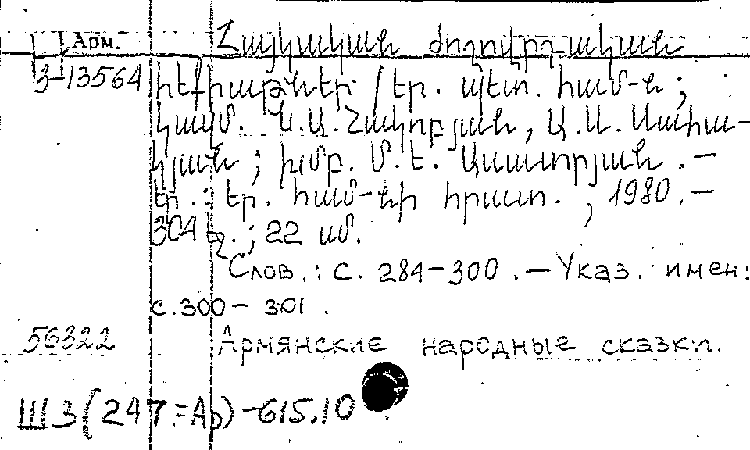 Арм. Հայկական ժողովրդական
3-13564 հեքիաթներ / Եր. պետ. համ-ն ;
կազմ. Ս.Ա. Հակոբյան, Ա.Ս. Սահա-
կյան ; խմբ. Մ.Ե. Ասատրյան . –
Եր. : Եր. համ-նի հրատ. , 1980. –
304 էջ. ; 22 սմ.
Слов. : с. 284-300 . – Указ. имен:
с.300 – 301 .
56322 Армянские народные сказки.
Ш3(247=Ар)-615.10